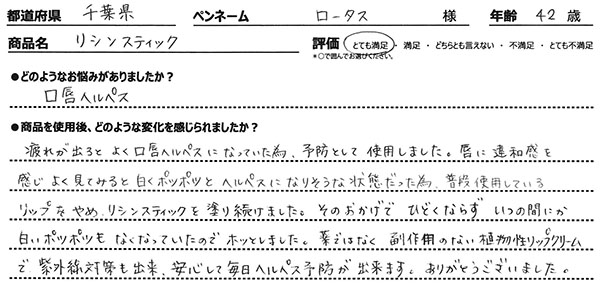 都道府県 千葉県 ペンネーム ロータス 様 年齢 42 歳
商品名 リシンスティック 評価 とても満足 ・ 満足 ・ どちらとも言えない ・ 不満足 ・ とても不満足
*○で囲んでお選びください。
●どのようなお悩みがありましたか？
口唇ヘルペス
●商品を使用後、どのような変化を感じられましたか？
疲れが出ると よく口唇ヘルペスに なっていた為、予防として 使用しました。唇に 違和感を
感じ よく見てみると 白くポツポツと ヘルペスに なりそうな 状態だった為、普段 使用している
リップを やめ、リシンスティックを 塗り続けました。そのおかげで ひどくならず いつの間にか
白いポツポツも なくなっていたので ホッとしました。薬ではなく 副作用のない 植物性リップクリーム
で 紫外線対策も出来、安心して毎日ヘルペス予防が 出来ます。ありがとうございました。